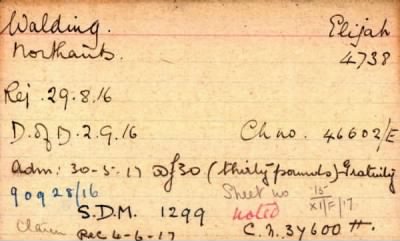 Walding. Elijah
Northants. 4738
Rej. 29.8.16
D. of D. 2.9.16 Ch no. 46602/E
Adm: 30-5-17 of 30 (thirty pounds) Gratuity
90928/16 Sheet no 15/XI/F/17
S.D.M. 1299 noted
Claim Rec 4-6-17 C.N. 37600 H.